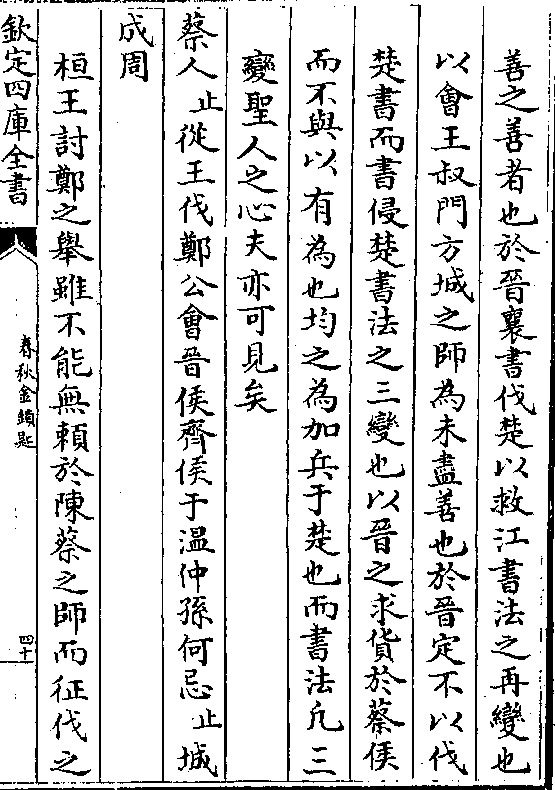 善之善者也於晉襄書伐楚以救江書法之再變也
以會王叔門方城之師為未盡善也於晉定不以伐
楚書而書侵楚書法之三變也以晉之求貨於蔡侯
而不與以有為也均之為加兵于楚也而書法凡三
變聖人之心夫亦可見矣
蔡人止從王伐鄭公會晉侯齊侯于溫仲孫何忌止城
成周
桓王討鄭之舉雖不能無賴於陳蔡之師而征伐之
欽定四庫全書
春秋金鎖匙
四十